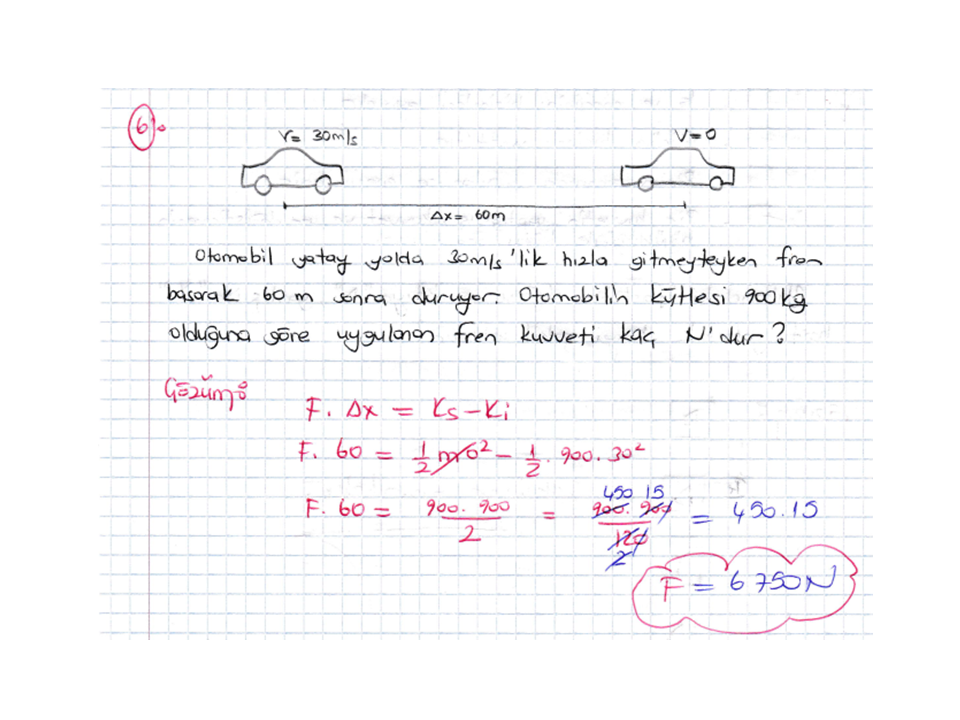 6.
V= 30m/s
V=0
Δx= 60m
Otomobil yatay yolda 30m/s'lik hızla gitmeyteyken fren
basarak 60 m sonra duruyor. Otomobilin kütlesi 900kg
olduğuna göre uygulanan fren kuvveti kaç N'dur?
Çözüm:
F. Δx = Ks-Ki
F. 60 = 1/2 m0² - 1/2 . 900. 30²
F. 60 = 900. 900 / 2 = 900. 900 / 120 450 15 2 = 450.15
F = 6750N